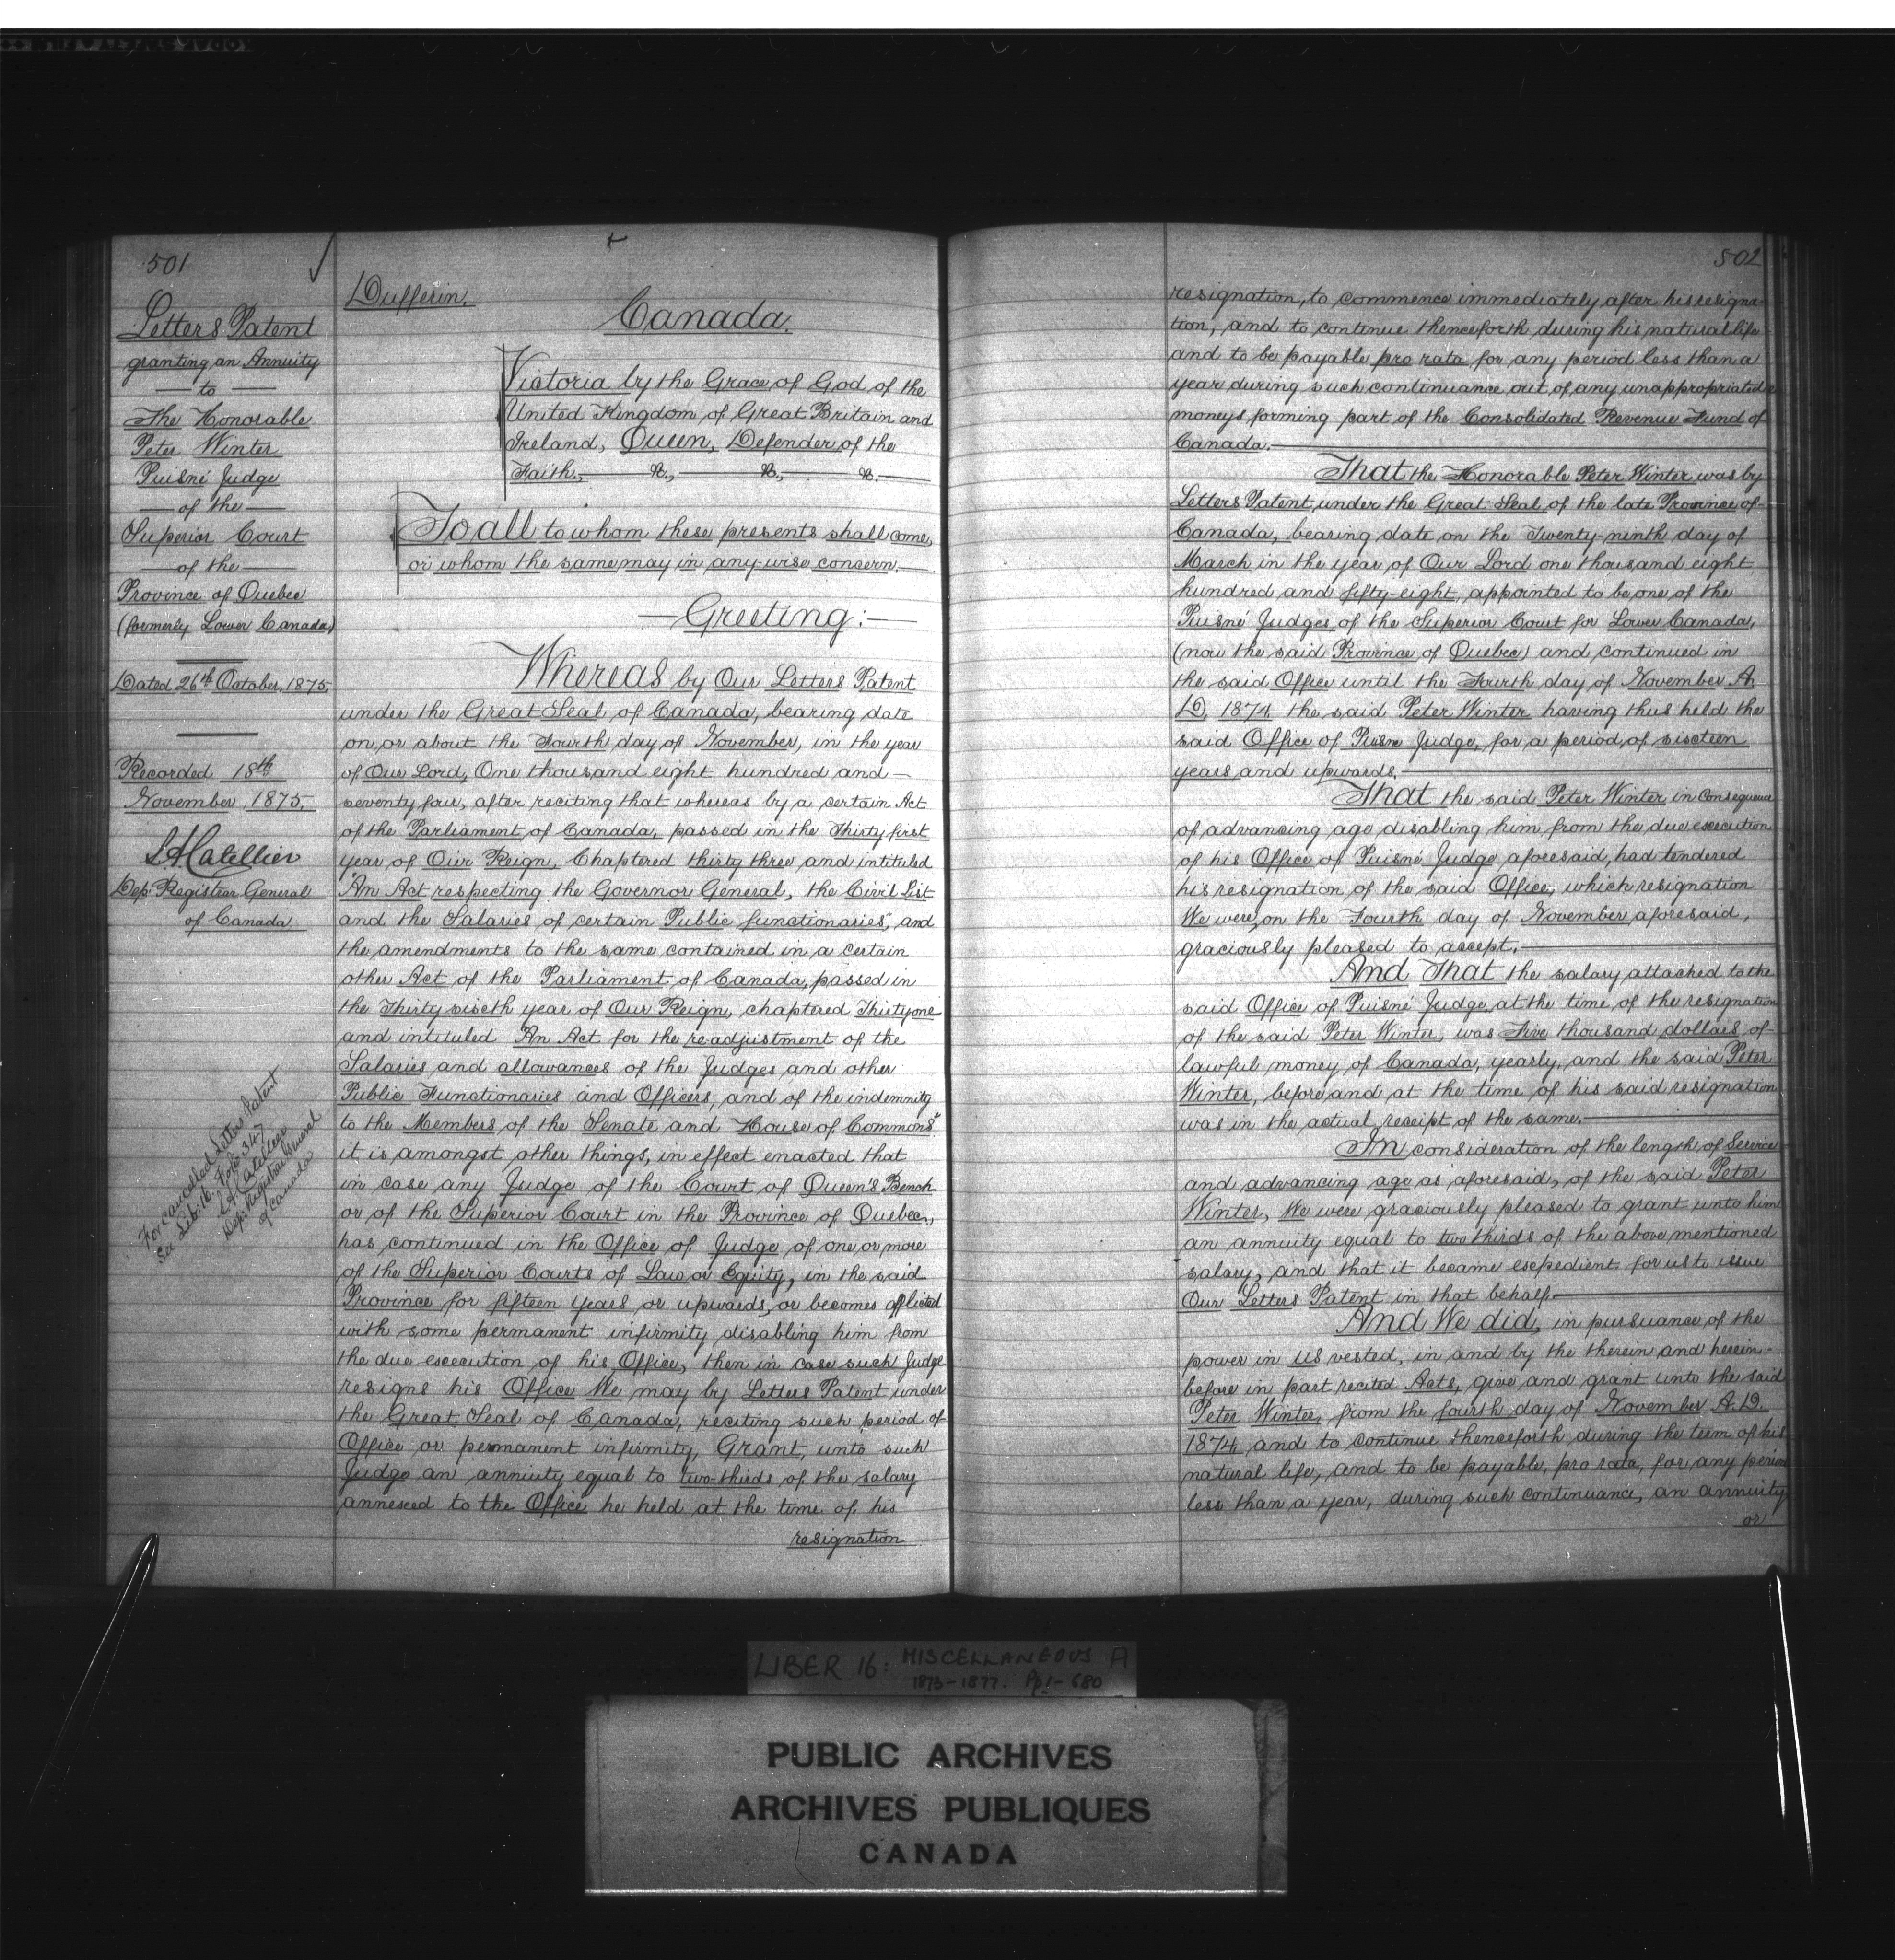 501
Letters Patent
granting an Annuity
to
The Honorable
Peter Winter
Puisné Judge
of the
Superior Court
of the
Province of Quebec
(formerly Lower Canada)
Dated 26th October, 1875.
Recorded 18th
November, 1875.
Dep: Registrar General
of Canada
For cancelled Letters Patent
see Lib: 16. Folio 347
Dep: Registrar General
of Canada
Dufferin.
Canada.
Victoria by the Grace of God of the
United Kingdom of Great Britain and
Ireland, Queen, Defender of the
Faith, — &., — &., — &. —
To all to whom these presents shall come,
or whom the same may in any wise concern. —
— Greeting: —
Whereas by Our Letters Patent
under the Great Seal of Canada, bearing date
on or about the Fourth day of November, in the year
of Our Lord, One thousand eight hundred and —
seventy four, after reciting that whereas by a certain Act
of the Parliament of Canada, passed in the Thirty first
year of Our Reign, Chaptered thirty three and intituled
"An Act respecting the Governor General, the Civil List
and the Salaries of certain Public functionaries", and
the amendments to the same contained in a certain
other Act of the Parliament of Canada, passed in
the Thirty sixth year of Our Reign, chaptered Thirty one
and intituled An Act for the re-adjustment of the
Salaries and allowances of the Judges and other
Public Functionaries and Officers, and of the indemnity
to the Members of the Senate and House of Commons"
it is amongst other things, in effect enacted that
in case any Judge of the Court of Queen's Bench
or of the Superior Court in the Province of Quebec,
has continued in the Office of Judge of one or more
of the Superior Courts of Law or Equity, in the said
Province for fifteen years or upwards, or becomes afflicted
with some permanent infirmity disabling him from
the due execution of his Office, then in case such Judge
resigns his Office We may by Letters Patent under
the Great Seal of Canada, reciting such period of
Office or permanent infirmity, Grant, unto such
Judge an annuity equal to two-thirds of the salary
annexed to the Office he held at the time of his
resignation
502
resignation, to commence immediately after his resigna-
tion, and to continue thenceforth during his natural life
and to be payable pro rata for any period less than a
year during such continuance out of any unappropriated
moneys forming part of the Consolidated Revenue Fund of
Canada. —
That the Honorable Peter Winter was by
Letters Patent, under the Great Seal of the late Province of
Canada, bearing date on the Twenty-ninth day of
March in the year of Our Lord one thousand eight
hundred and fifty-eight, appointed to be one of the
Puisné Judges of the Superior Court for Lower Canada,
(now the said Province of Quebec) and continued in
the said Office until the Fourth day of November A.
D, 1874 the said Peter Winter having thus held the
said Office of Puisne Judge, for a period of sixteen
years and upwards. —
That the said Peter Winter in consequence
of advancing age disabling him from the due execution
of his Office of Puisné Judge aforesaid, had tendered
his resignation of the said Office, which resignation
We were, on the Fourth day of November aforesaid,
graciously pleased to accept. —
And That the salary attached to the
said Office of Puisné Judge at the time of the resignation
of the said Peter Winter, was Five thousand dollars of
lawful money of Canada, yearly, and the said Peter
Winter, before and at the time of his said resignation
was in the actual receipt of the same. —
In consideration of the length of Service
and advancing age as aforesaid, of the said Peter
Winter, We were graciously pleased to grant unto him
an annuity equal to two thirds of the above mentioned
salary, and that it became expedient for us to issue
Our Letters Patent in that behalf. —
And We did, in pursuance of the
power in us vested, in and by the therein and herein-
before in part recited Acts, give and grant unto the said
Peter Winter, from the fourth day of November A.D.
1874 and to continue thenceforth during the term of his
natural life, and to be payable, pro rata, for any period
less than a year, during such continuance, an annuity
or
LIBER 16: MISCELLANEOUS A
1873-1877. Pp 1-680
PUBLIC ARCHIVES
ARCHIVES PUBLIQUES
CANADA